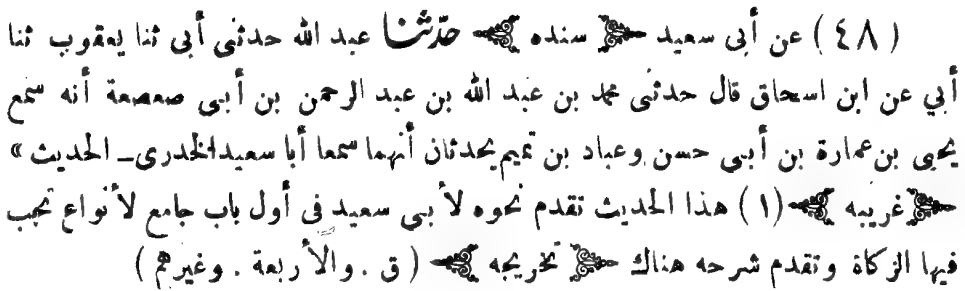 ( ٤٨ ) عن أبى سعيد ﴿ سنده ﴾ حدّثنا عبد الله حدثنى أبى ثنا يعقوب ثنا
أبي عن ابن اسحاق قال حدثنى محمد بن عبد الله بن عبد الرحمن بن أبى صعصعة أنه سمع
يحيى بن عمارة بن أبى حسن وعباد بن تميم يحدثان أنهما سمعا أبا سعيد الخدرى ــ الحديث »
﴿ غريبه ﴾ (١) هذا الحديث تقدم نحوه لأبى سعيد فى أول باب جامع لأنواع تجب
فيها الزكاة وتقدم شرحه هناك ﴿ تخريجه ﴾ ( ق . والأربعة . وغيرهم )